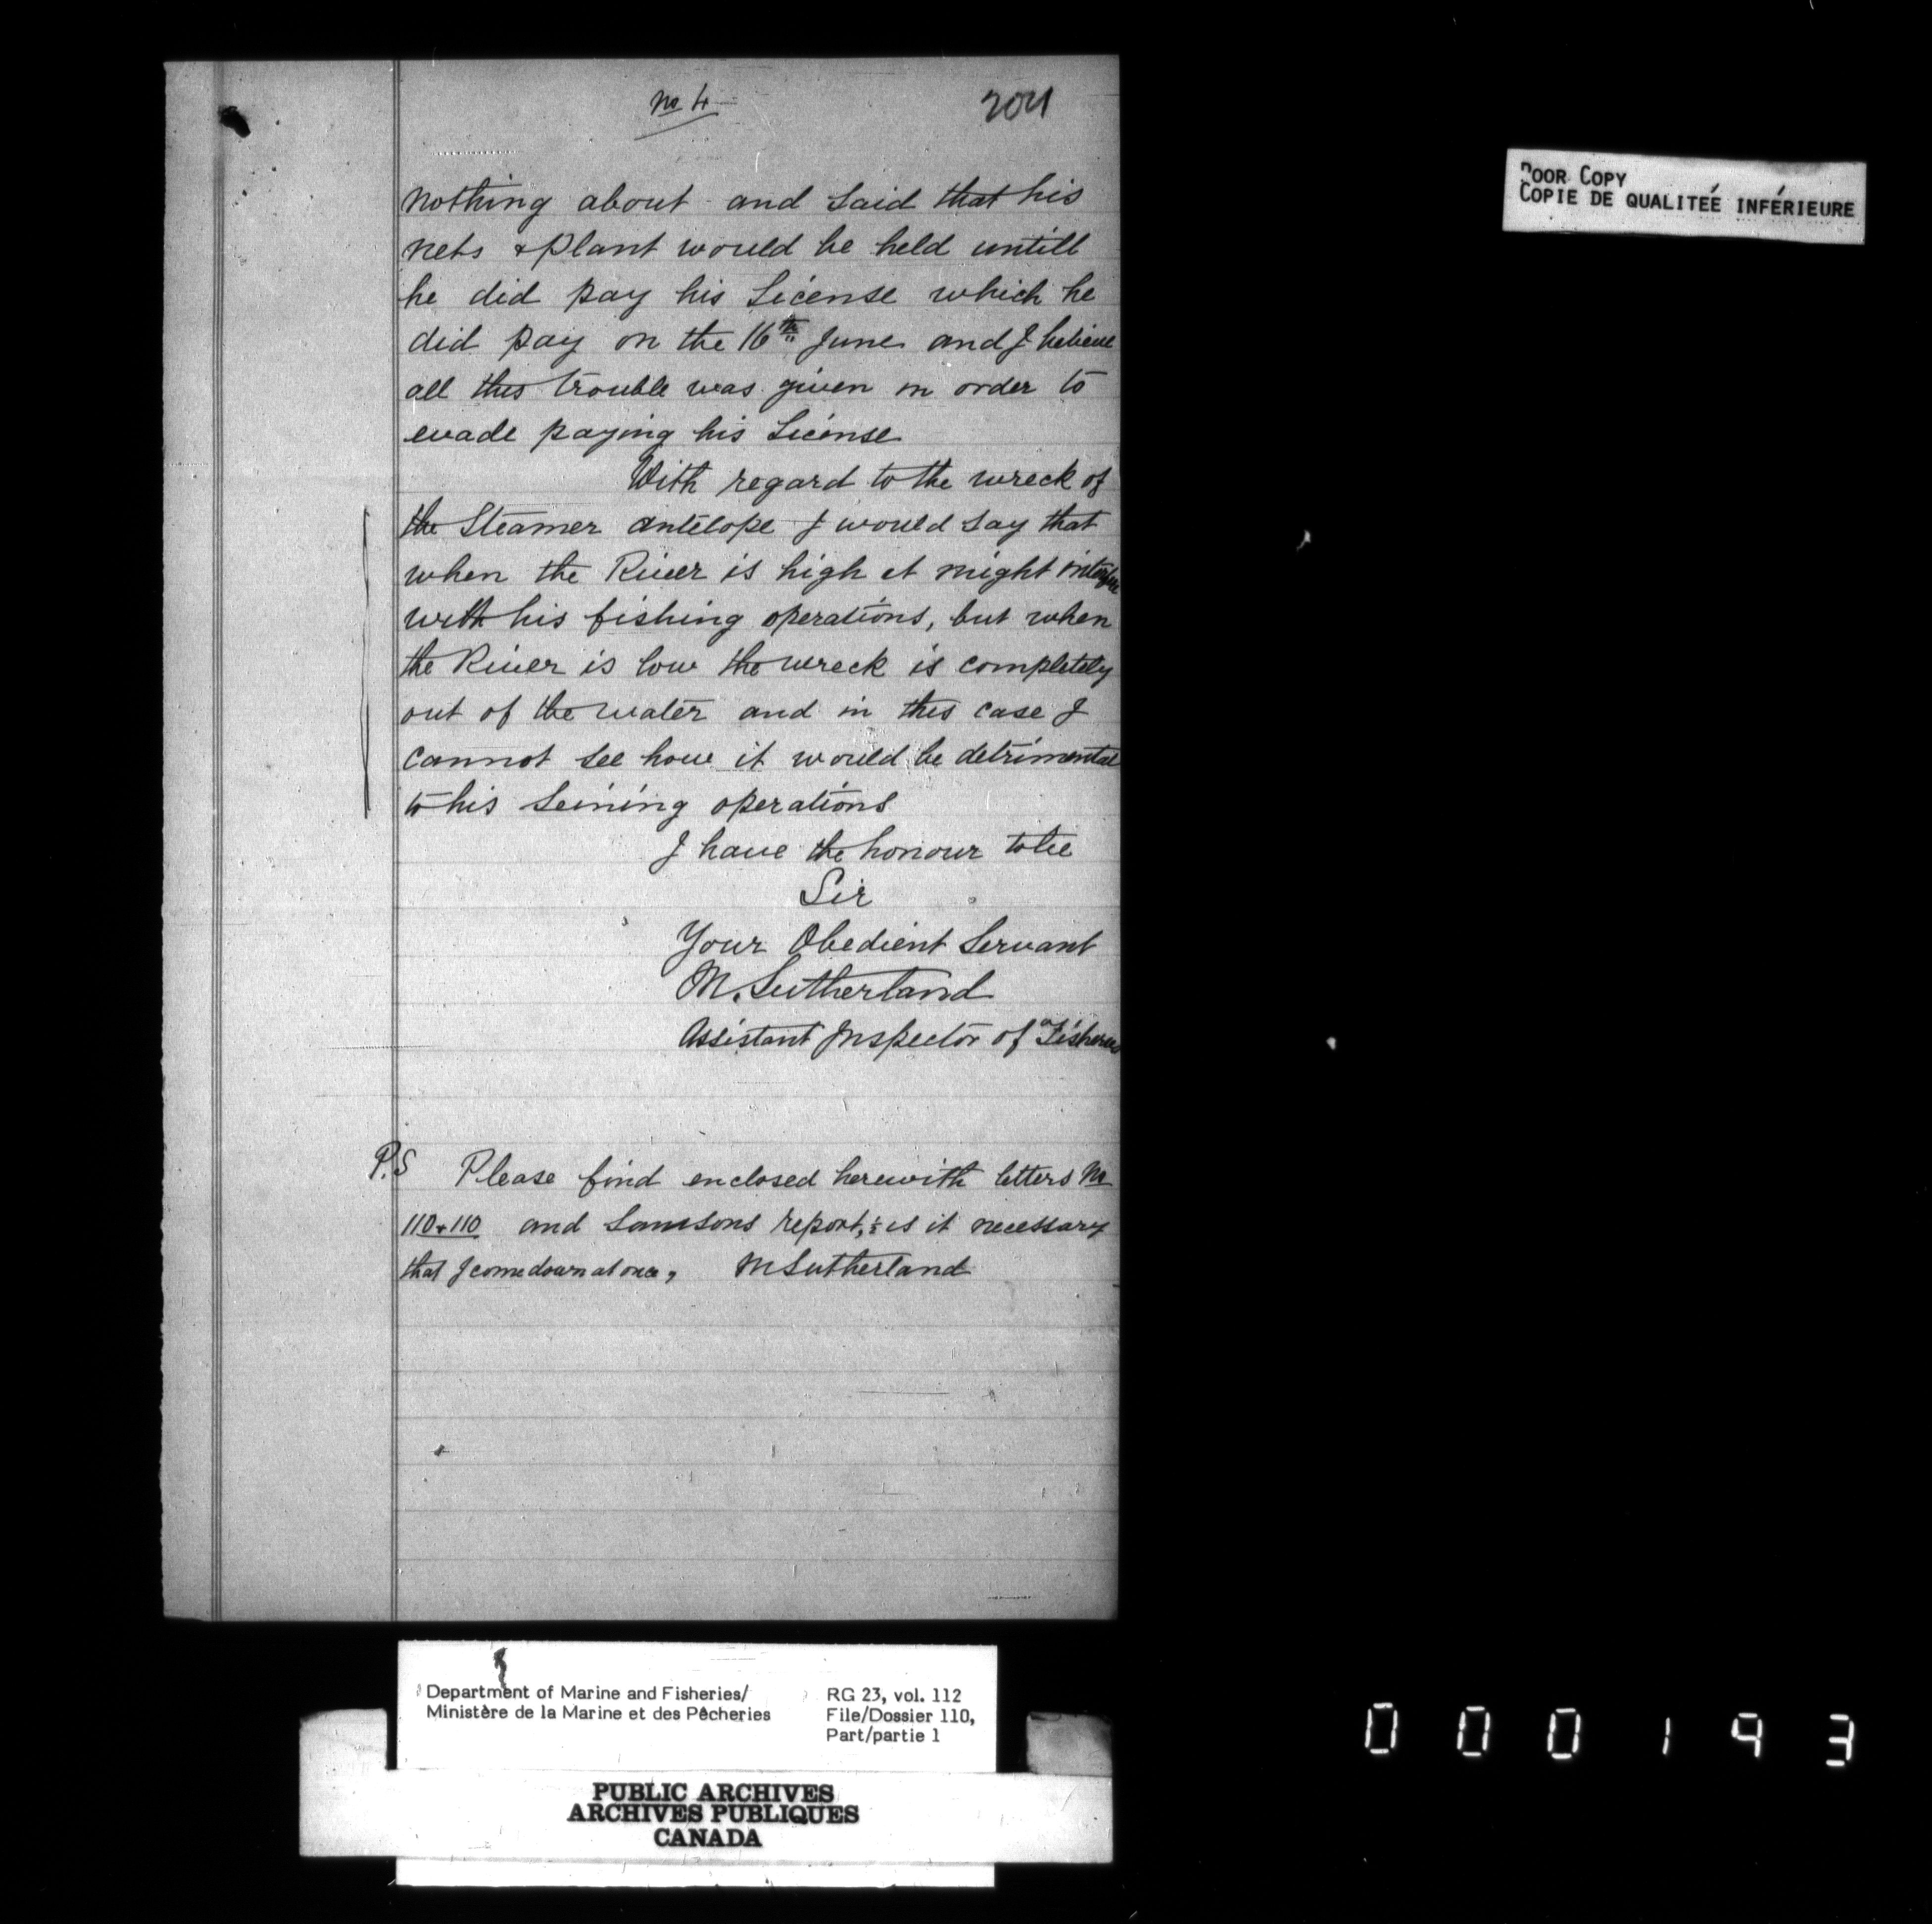 no 4
204
nothing about and said that his
nets & plant would be held untill
he did pay his License which he
did pay on the 16th June and I believe
all this trouble was given in order to
evade paying his License
With regard to the wreck of
the Steamer antelope I would say that
when the River is high it might interfere
with his fishing operations, but when
the River is low the wreck is completely
out of the water and in this case I
cannot see how it would be detrimental
to his Seining operations
I have the honour to be
Sir
Your Obedient Servant
M. Sutherland
Assistant Inspector of Fisheries
P.S Please find enclosed herewith letters No
110 & 110 and Samsons report, is it necessary
that I come down at once, M Sutherland
POOR COPY
COPIE DE QUALITEÉ INFÉRIEURE
Department of Marine and Fisheries/
Ministère de la Marine et des Pêcheries
RG 23, vol. 112
File/Dossier 110,
Part/partie 1
PUBLIC ARCHIVES
ARCHIVES PUBLIQUES
CANADA
000193